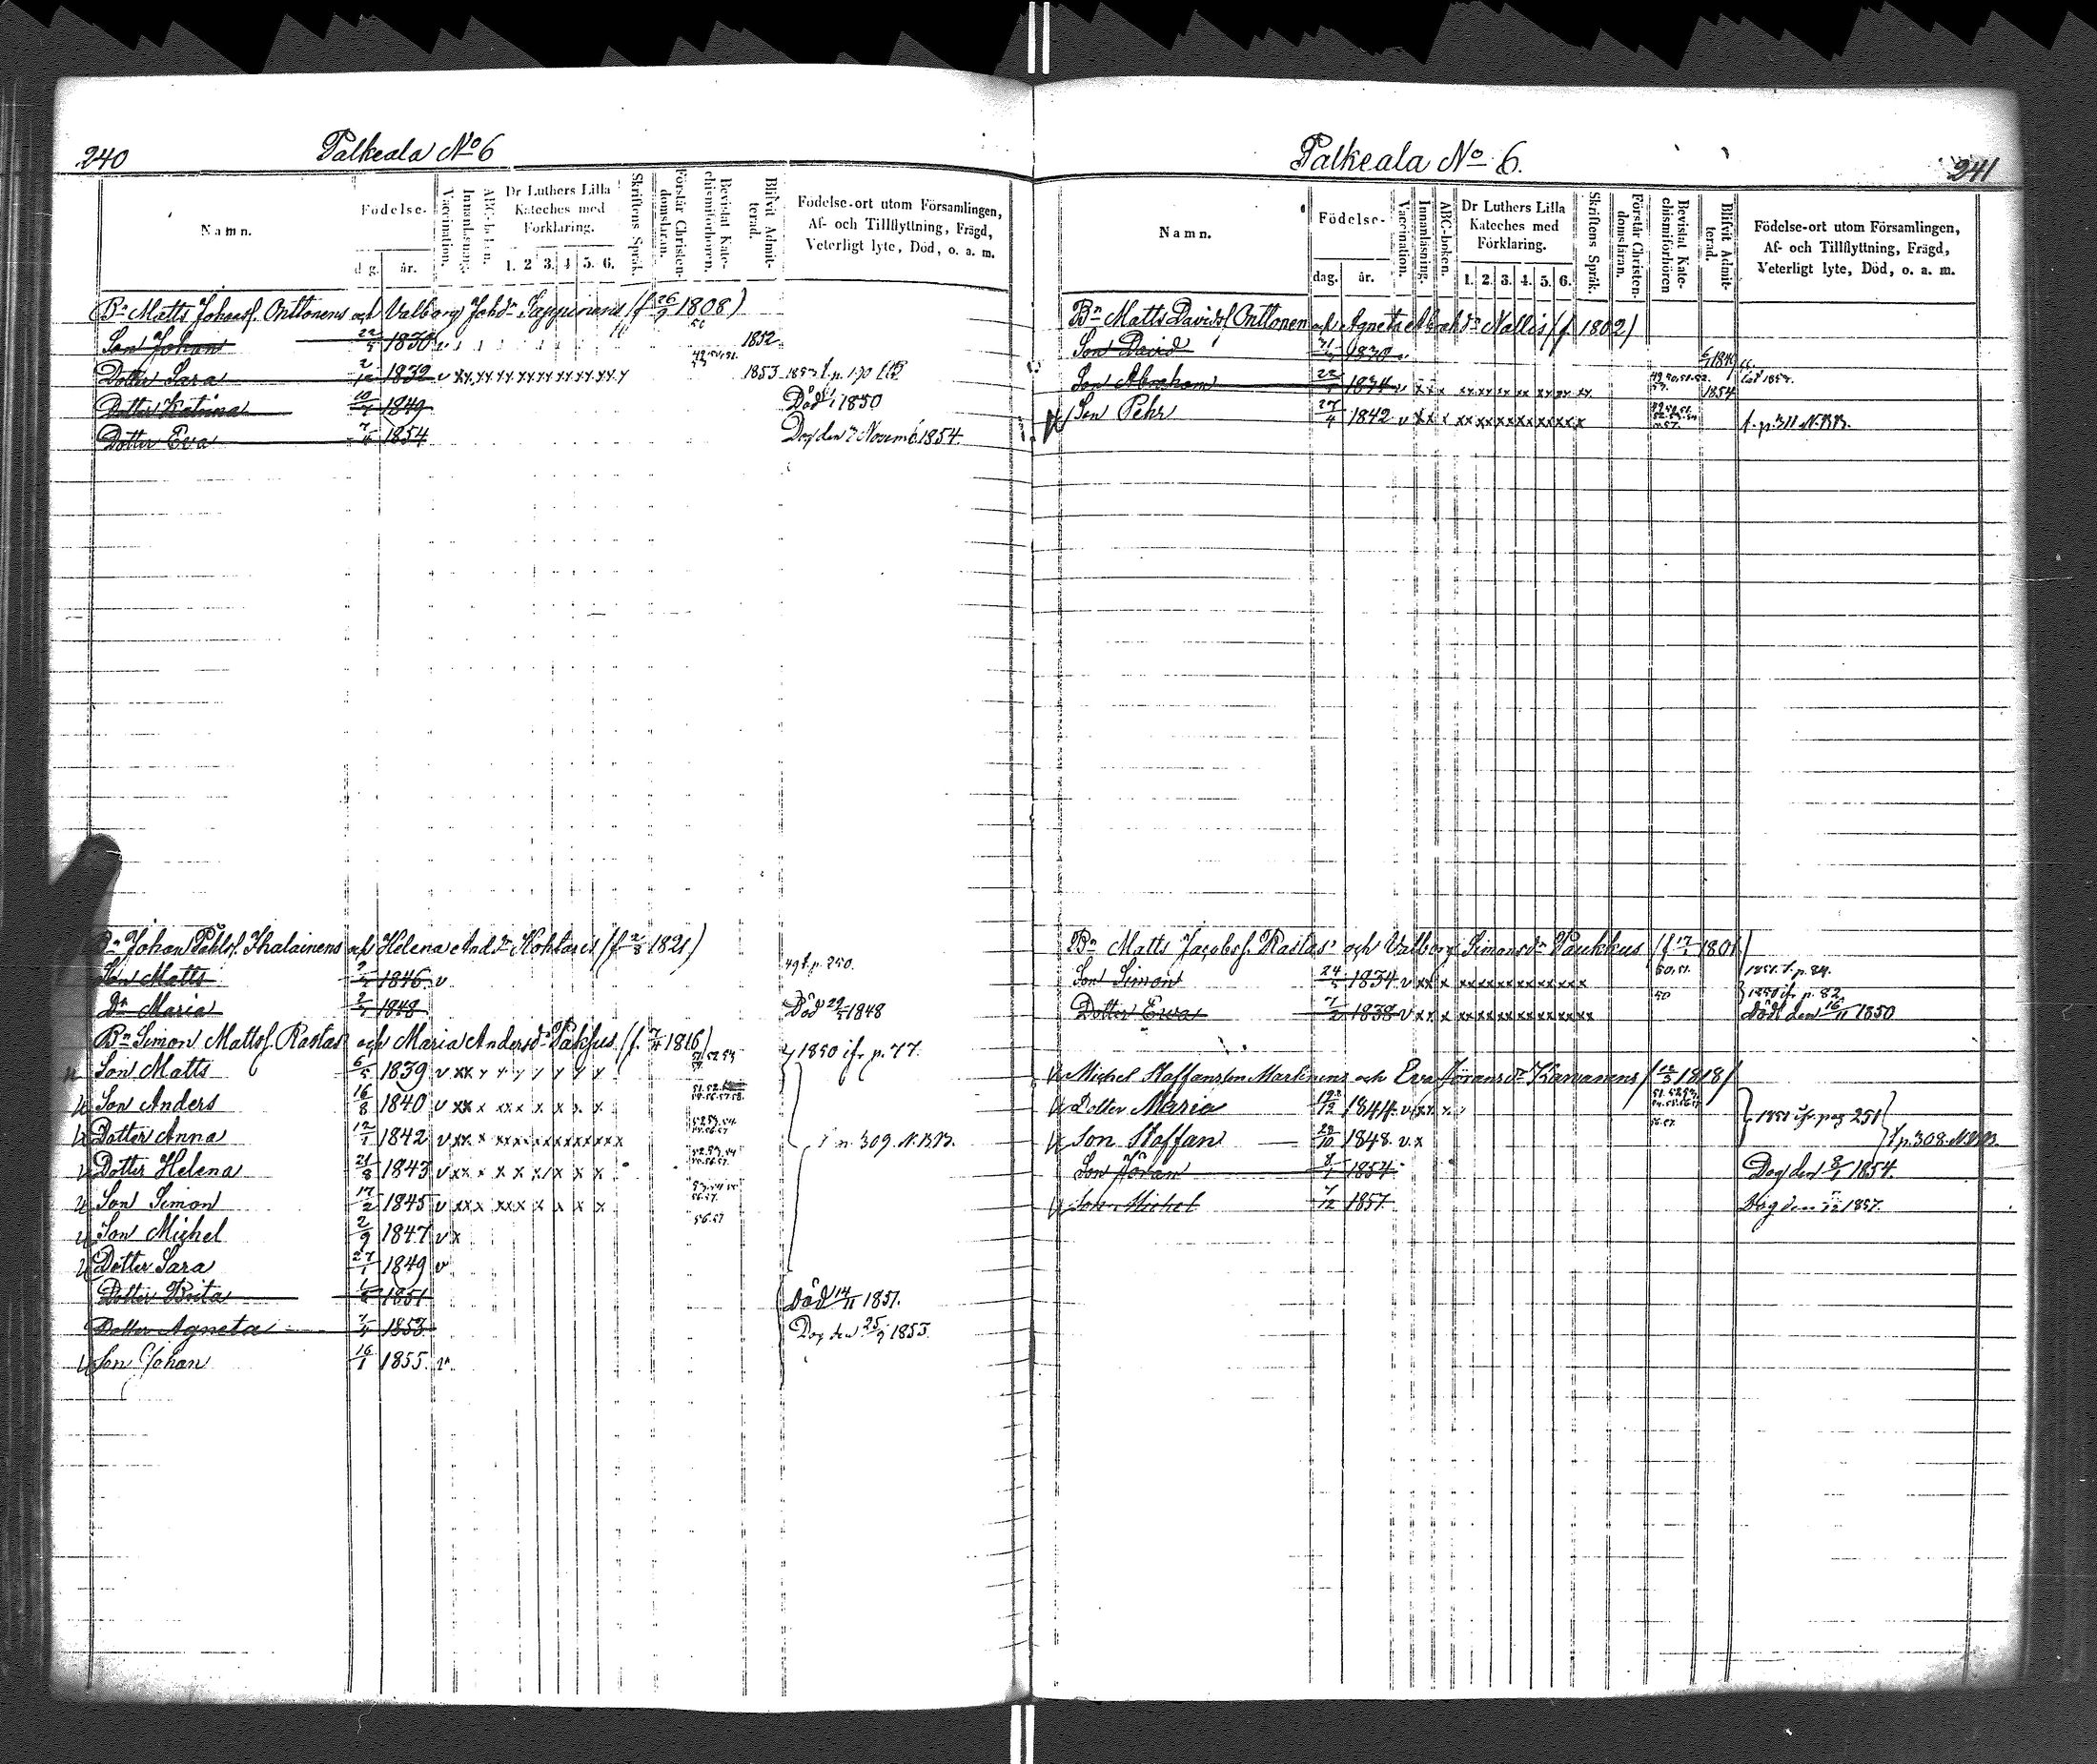 240 Palkeala No 6
Namn. Födelse- dag. år. Vaccination. Innanläsning. ABC-boken. Dr Luthers Lilla Kateches med Förklaring. 1. 2. 3. 4. 5. 6. Skriftens Språk. Förstår Christendomsläran. Bevistat Katechismiförhören. Blifvit Admitterad. Födelse-ort utom Församlingen, Af- och Tillflyttning, Frägd, Veterligt lyte, Död, o. a. m.
Bn Matts Johansf. Onttonens och Valborg Johdr (f 26/9 1808)
Son Johan 1830 v 1852
Dotter Sara 1832 v xx 1853
Dotter Katrina 1849 Död 1850
Dotter Eva 1854 Dog den 7 Novemb. 1854.
Bn Johan Påhlsf. Ihalainens och Helena And.dr (f 2/8 1821)
Son Matts 1846 v 49 t. p. 250.
Dr Maria 1848 Död 1848
Bn Simon Mattsf. Rastas och Maria Andersdr (f. 7/4 1816)
Son Matts 6/5 1839 v xx 1850 ifr. p. 77.
Son Anders 16/8 1840 v xx x xx x x x x x
Dotter Anna 12/1 1842 v xx x t. p. 309. N.B.B.
Dotter Helena 21/8 1843 v xx x x x x x x x
Son Simon 17/2 1845 v xx x xx x x x x x
Son Michel 2/9 1847 v x 56.57
Dotter Sara 27/1 1849 v
Dotter Brita 1851 Död 14/11 1851.
Dotter Agneta 1853 Dog den 25/9 1853.
Son Johan 16/1 1855. v.
Palkeala No 6. 241
Namn. Födelse- dag. år. Vaccination. Innanläsning. ABC-boken. Dr Luthers Lilla Kateches med Förklaring. 1. 2. 3. 4. 5. 6. Skriftens Språk. Förstår Christendomsläran. Bevistat Katechismiförhören Blifvit Admitterad. Födelse-ort utom Församlingen, Af- och Tillflyttning, Frägd, Veterligt lyte, Död, o. a. m.
Bn Matts Davidsf. Onttonen och Agneta Abrah.dr Nallis (f 1802)
Son David 1830
Son Abraham 1834 v x x x 1854
Son Pehr 27/4 1842 v x x x t. p. 311 N.B.B.
Bn Matts Jacobsf. Rastas och Valborg Simonsdr Paukkus (f 1801)
Son Simon 24/5 1834 v xx x 50.51. 1851. t. p. 84.
Dotter Ewa 1838 v x x x 50 1850 ifr. p. 82. Död den 16/11 1850
Michel Staffansson Martinens och Eva Göransdr (12/3 1818)
Dotter Maria 1844. v 1851 ifr. pag 251
Son Staffan 28/10 1848. v. x t. p. 308. N.B.B.
Son Jöran 8/1 1854 Dog den 8/1 1854.
Son Michel 7/12 1857. Dog den 1857.